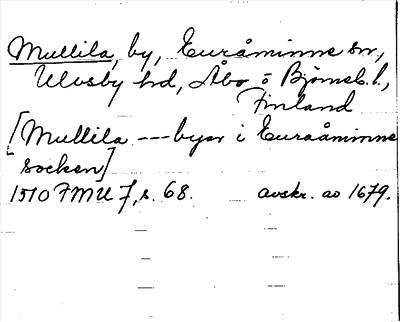 Mullila, by, Euraåminne sn,
Ulvsby hd, Åbo o Björneb. l.,
Finland
[Mullila --- byar i Euraåminne
socken]
1510 FMU 7, s. 68. avskr. av 1679.